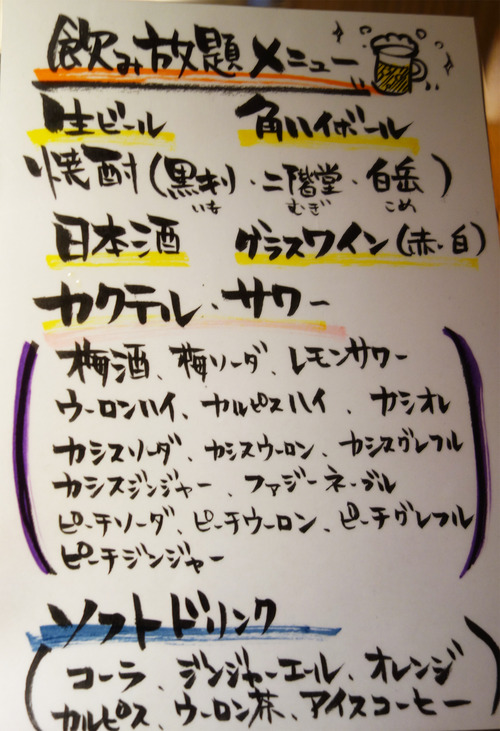 飲み放題メニュー
生ビール 角ハイボール
焼酎(黒キリ・二階堂・白岳)
いも むぎ こめ
日本酒 グラスワイン(赤・白)
カクテル・サワー
梅酒、梅ソーダ、レモンサワー
ウーロンハイ、カルピスハイ、カシオレ
カシスソーダ、カシスウーロン、カシスグレフル
カシスジンジャー、ファジーネーブル
ピーチソーダ、ピーチウーロン、ピーチグレフル
ピーチジンジャー
ソフトドリンク
コーラ、ジンジャーエール、オレンジ
カルピス、ウーロン茶、アイスコーヒー